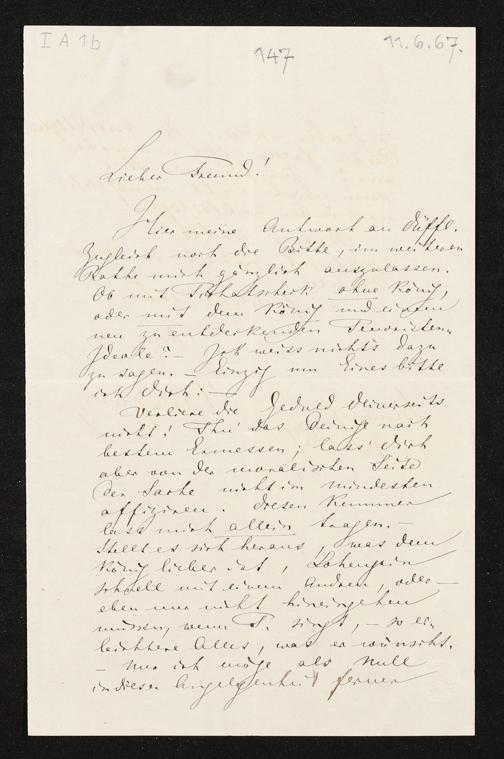 I A 1b
147
11.6.67.
Lieber Freund!
Hier meine Antwort an Düffl.
Zugleich noch die Bitte, im weiteren
Rathe mich gänzlich auszulassen.
Ob mit Tichatscheck ohne König,
oder mit dem König und einem
neu zu entdeckenden Tenoristen-
Ideale? – Ich weiss nichts dazu
zu sagen. – Einzig um Eines bitte
ich Dich: –
Verliere die Geduld Deinerseits
nicht! Thu' das Deinige nach
bestem Ermessen; lass' Dich
aber von der moralischen Seite
der Sache nicht im mindesten
affiziren. Diesen Kummer
lass mich allein tragen. –
Stellt es sich heraus, was dem
König lieber ist, Lohengrin
schnell mit einem Andren, oder –
eben nur nicht hineingehen
müssen, wenn T. singt, – so er-
leichtere Alles, was er wünscht.
– Nur ich möge als Null
in dieser Angelegenheit ferner